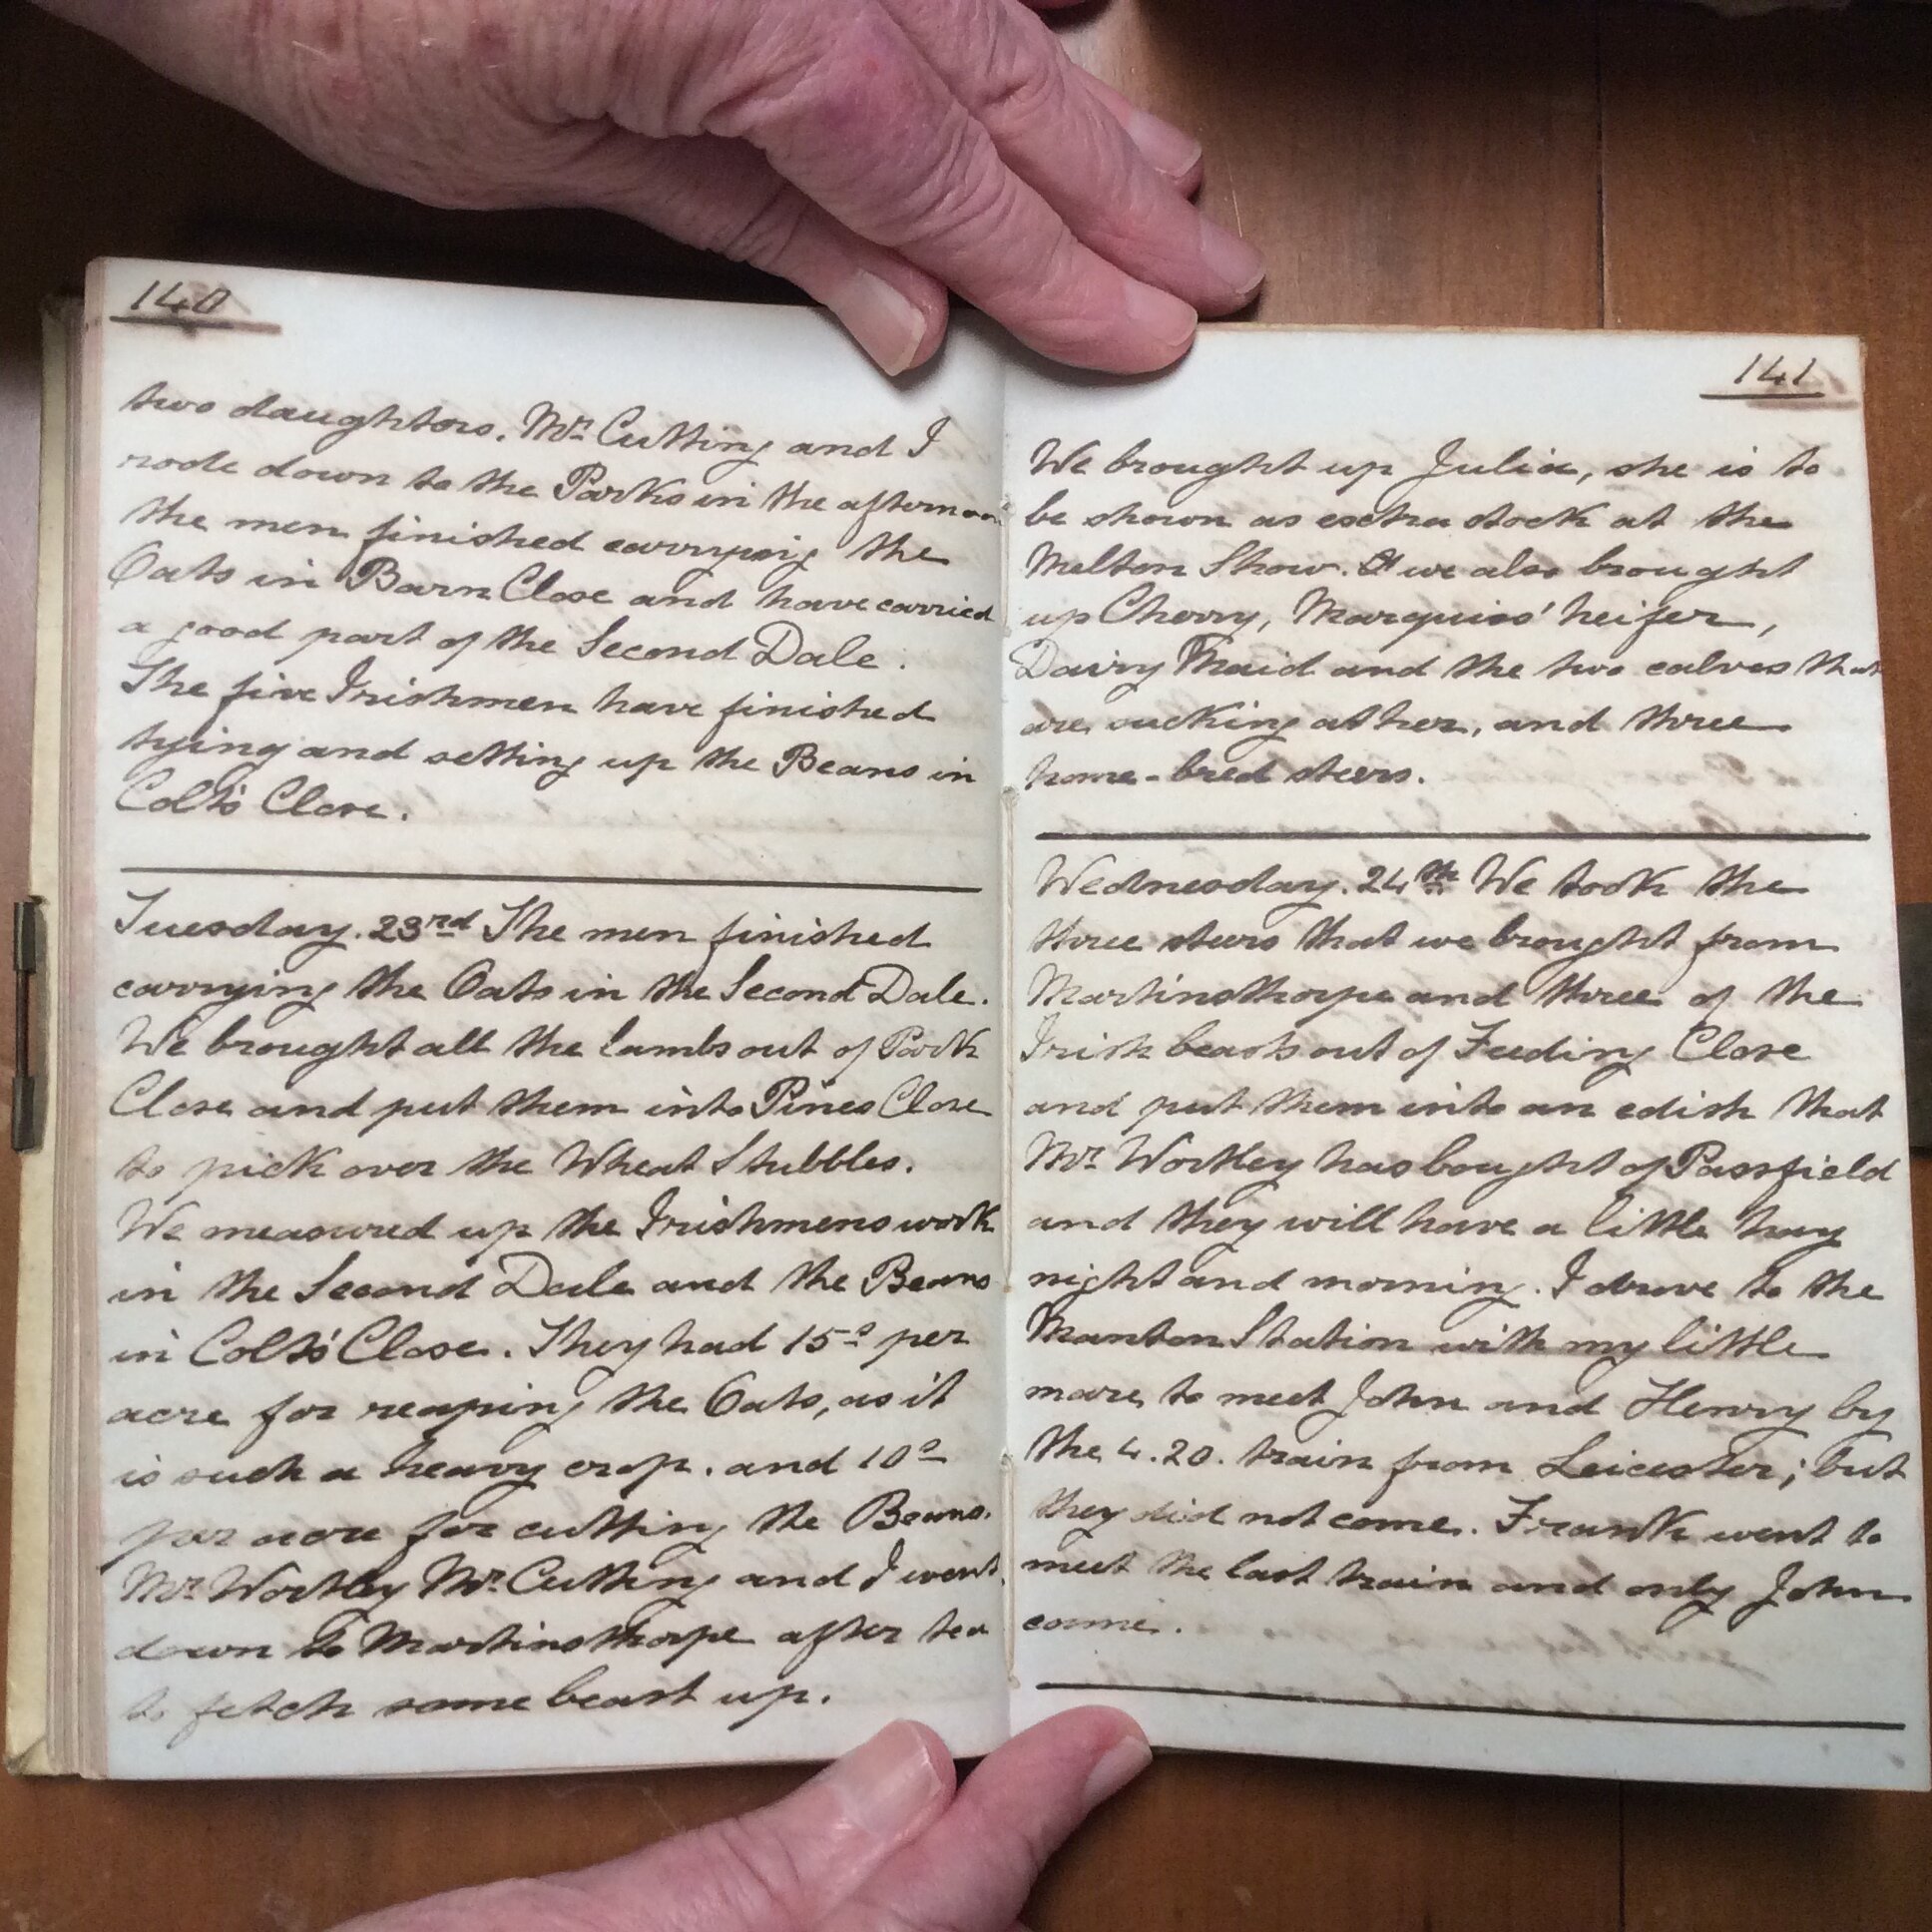 140
two daughters. Mr. Cutting and I
rode down to the Parks in the afternoon
the men finished carrying the
Oats in Barn Close and have carried
a good part of the Second Dale.
The five Irishmen have finished
tying and setting up the Beans in
Colts Close.
Tuesday. 23rd The men finished
carrying the Oats in the Second Dale.
We brought all the lambs out of Park
Close and put them into Pines Close
to pick over the Wheat Stubbles.
We measured up the Irishmens work
in the Second Dale and the Beans
in Colts' Close. They had 15s per
acre for reaping the Oats, as it
is such a heavy crop. and 10s
per acre for cutting the Beans.
Mr. Wortley Mr. Cutting and I went
down to Martinsthorpe after tea
to fetch some beast up.
141
We brought up Julia, she is to
be shown as extra stock at the
Melton Show. we also brought
up Cherry, Marquiss' heifer,
Dairy Maid and the two calves that
are sucking at her, and three
home-bred steers.
Wednesday. 24th We took the
three steers that we brought from
Martinsthorpe and three of the
Irish beasts out of Feeding Close
and put them into an edish that
Mr. Wortley has bought of Passfield
and they will have a little hay
night and morning. I drove to the
Manton Station with my little
mare to meet John and Henry by
the 4.20. train from Leicester; but
they did not come. Frank went to
meet the last train and only John
came.